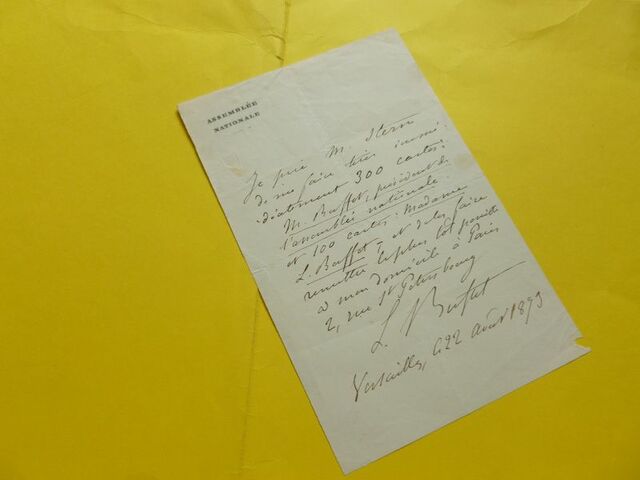 ASSEMBLÉE
NATIONALE
Je prie M. Stern
de me faire très immé-
diatement 300 cartes:
M. Buffet, président de
l'assemblée nationale.
et 100 cartes: Madame
L. Buffet - et de les faire
remettre le plus tôt possible
à mon domicile à Paris
2, rue St Pétersbourg
L. Buffet
Versailles, le 22 août 1873